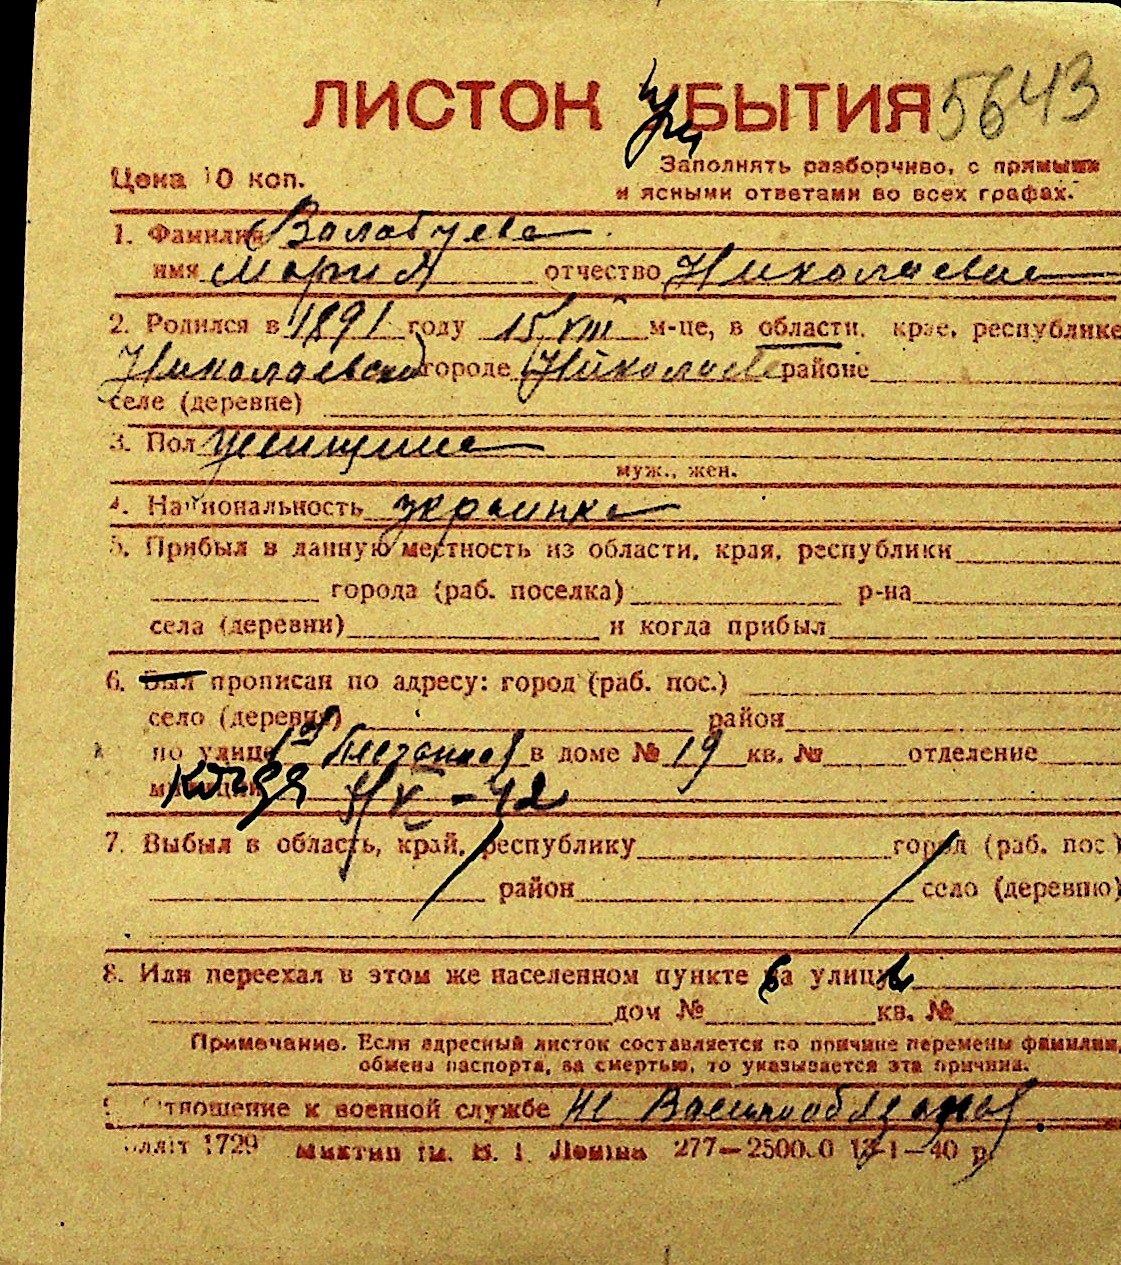 ЛИСТОК УБЫТИЯ 5643
при
Цена 10 коп.
Заполнять разборчиво, с прямыми
и ясными ответами во всех графах.
1. Фамилия Валабуева
имя Мария отчество Николаевна
2. Родился в 1891 году 15/VIII м-це, в области, крае, республике
Николаевской городе Николаев районе
селе (деревне)
3. Пол женщина
муж., жен.
4. Национальность украинка
5. Прибыл в данную местность из области, края, республики
города (раб. поселка) р-на
села (деревни) и когда прибыл
6. Был прописан по адресу: город (раб. пос.)
село (деревня) район
по улице в доме № 19 кв. № отделение
милиции когда V - 42
7. Выбыл в область, край, республику город (раб. пос.)
район село (деревню)
8. Или переехал в этом же населенном пункте на улицу
дом № кв. №
Примечание. Если адресный листок составляется по причине перемены фамилии,
обмена паспорта, за смертью, то указывается эта причина.
9. Отношение к военной службе не Военнообязаная.
1729 им. В. І. Леніна 277—250000 13-1-40 р.